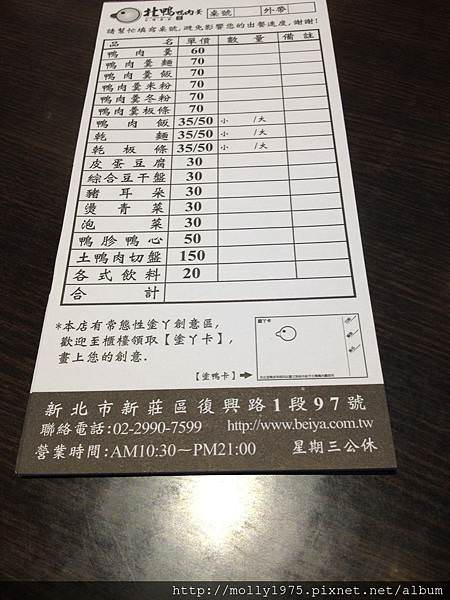 北鴨 鴨肉羹 桌號 外帶
請幫忙填寫桌號,避免影響您的出餐速度,謝謝!
品名 單價 數量 備註
鴨肉羹 60
鴨肉羹麵 70
鴨肉羹飯 70
鴨肉羹米粉 70
鴨肉羹冬粉 70
鴨肉羹板條 70
鴨肉飯 35/50 小 /大
乾麵 35/50 小 /大
乾板條 35/50 小 /大
皮蛋豆腐 30
綜合豆干盤 30
豬耳朵 30
燙青菜 30
泡菜 30
鴨胗鴨心 50
土鴨肉切盤 150
各式飲料 20
合計
*本店有常態性塗丫創意區,
歡迎至櫃檯領取【塗丫卡】,
畫上您的創意.
【塗鴨卡】
新北市新莊區復興路1段97號
聯絡電話:02-2990-7599 http://www.beiya.com.tw
營業時間:AM10:30~PM21:00 星期三公休
http://molly1975.pixnet.net/album